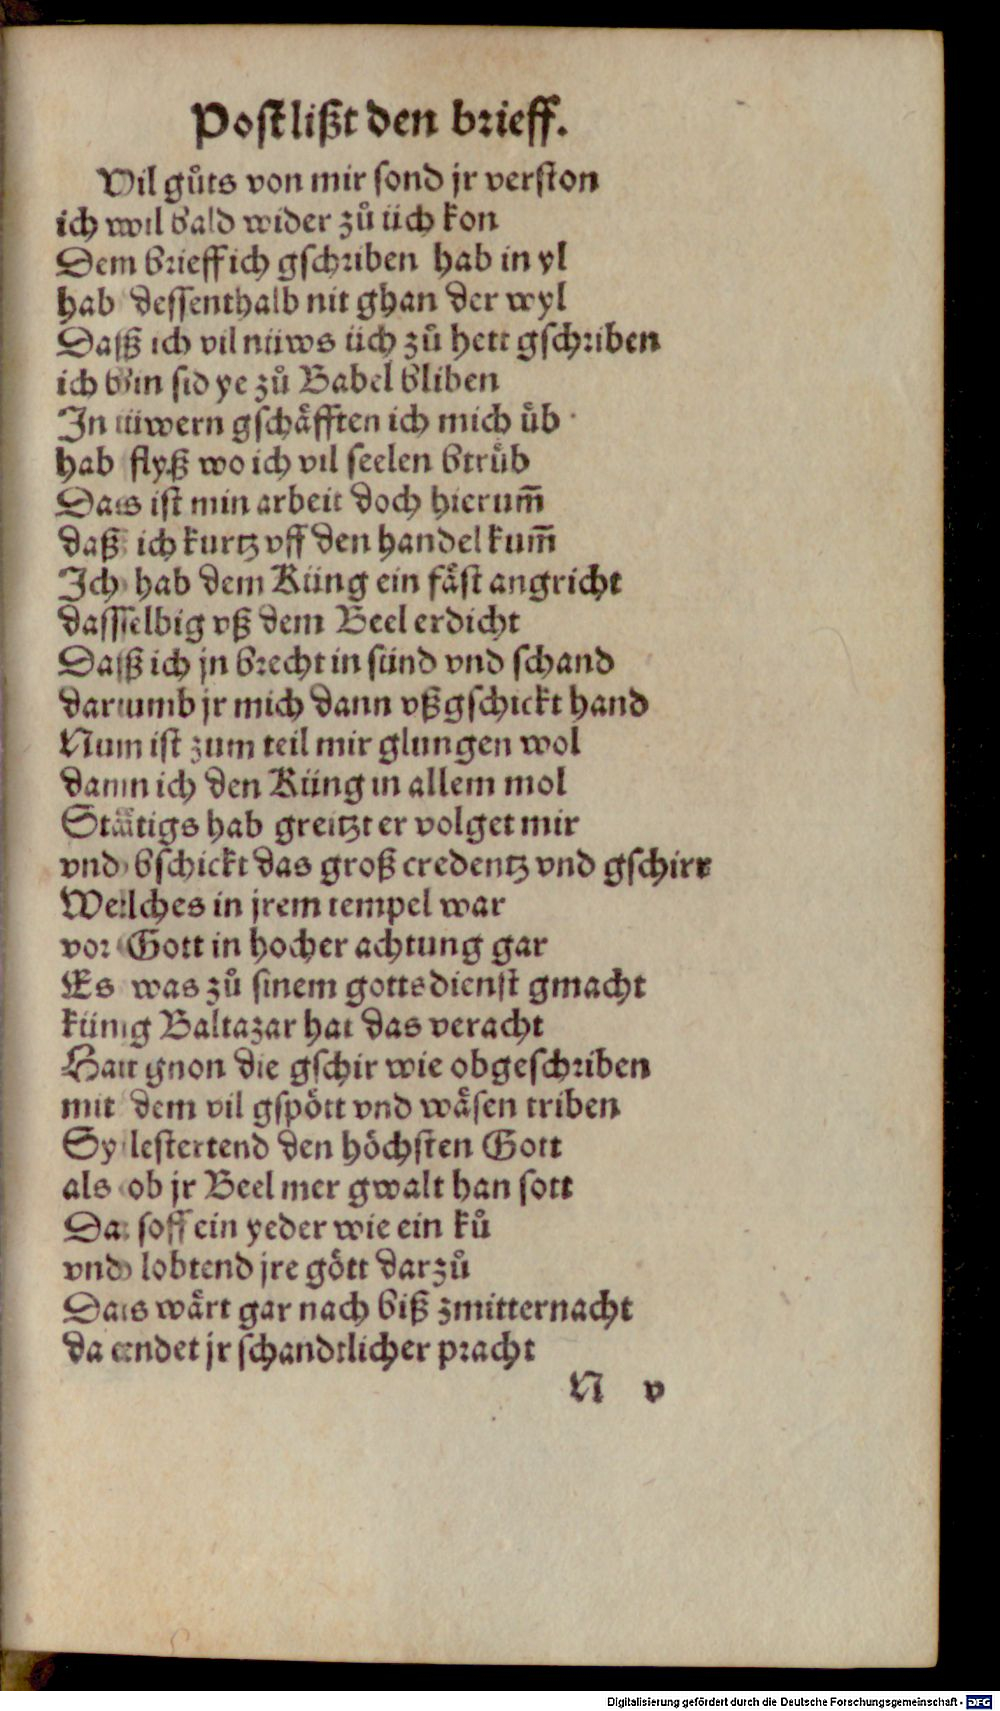 Post lißt den brieff.
Vil gůts von mir sond jr verston
ich wil bald wider zů üch kon
Dem brieff ich gschriben hab in yl
hab dessenthalb nit ghan der wyl
Daß ich vil nüws üch zů hett gschriben
ich bin sid ye zů Babel bliben
In üwern gschäfften ich mich üb
hab flyß wo ich vil seelen btrüb
Das ist min arbeit doch hierum̄
daß ich kurtz vff den handel kum̄
Ich hab dem Küng ein fäst angricht
dasselbig vß dem Beel erdicht
Daß ich jn brecht in sünd vnd schand
darumb jr mich dann vßgschickt hand
Nun ist zum teil mir glungen wol
dann ich den Küng in allem mol
Stätigs hab greitzt er volget mir
vnd bschickt das groß credentz vnd gschirr
Welches in jrem tempel war
vor Gott in hocher achtung gar
Es was zů sinem gottsdienst gmacht
künig Baltazar hat das veracht
Hatt gnon die gschir wie obgeschriben
mit dem vil gspött vnd wäsen triben
Sy lestertend den höchsten Gott
als ob jr Beel mer gwalt han sott
Da soff ein yeder wie ein ků
vnd lobtend jre gött darzů
Das wärt gar nach biß zmitternacht
da endet jr schandtlicher pracht
N v
Digitalisierung gefördert durch die Deutsche Forschungsgemeinschaft - DFG